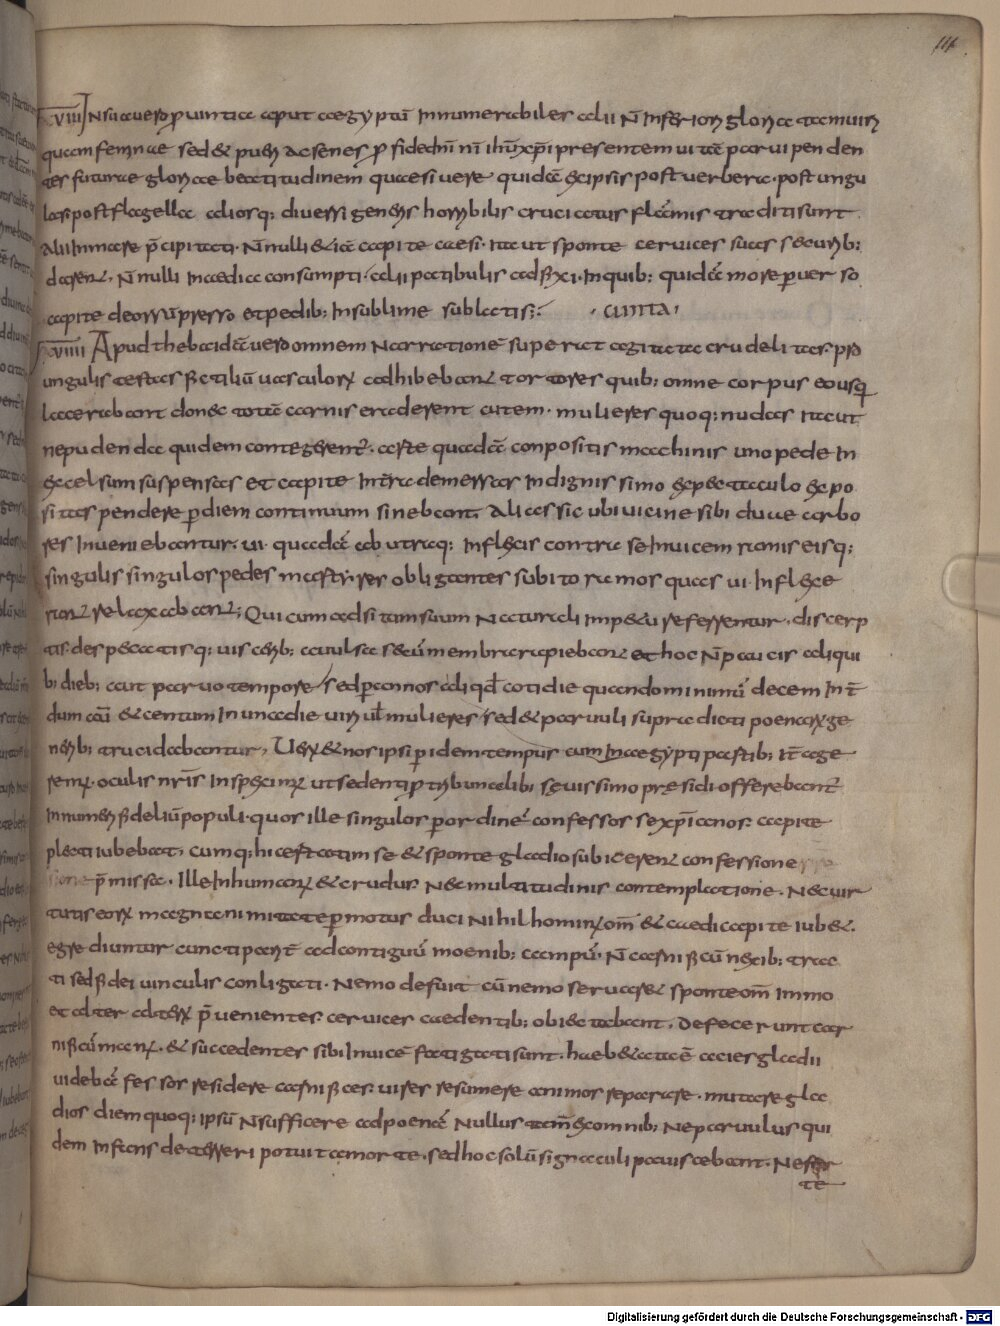 111
XVIII In sua uero puintia caput aegyptū innumerabiles alii n̄ inferiori gloria tam uiri
quam feminae sed & pueri ac senes p fide dn̄i nr̄i ihū xp̄i presentem uitā paruipenden
tes futurae gloriae beatitudinem quaesiuere quidā & ipsis post uerbera · post ungu
las · post flagella aliosq; diuersi generis horribilis cruciatus flāmis traditi sunt
alii in mare p̄cipitati · n̄nulli & iā capite caesi · ita ut sponte ceruices suas securib;
darent · n̄nulli in aedia consumpti · alii patibulis adfixi · in quib; quidā more peruerso
capite deorsū presso et pedib; in sublime sublatis ; · cuncta ·
XVIIII Apud thebaidā uero omnem narrationē superat agitata crudelitas · pro
ungulis testas fictiliū uasculorum adhibebant tortores quib; omne corpus eousq;
lacerabant donec totā carnis eraderent cutem · mulieres quoq; nudas ita ut
ne pudenda quidem contegerent · arte quadā conpositis machinis uno pede in
excelsum suspensas et capite in terra demersas indignissimo expectaculo expo
sitas pendere p diem continuum sinebant · Alias sic ubi uicine sibi duae arbo
res inueniebantur · ui quadā ab utraq; inflexis contra se inuicem ramis eisq;
singulis singulos pedes martyres obligantes subito ramos quas ui inflexe
rant relaxabant ; Qui cum ad situm suum naturali impetu referrentur · discerp
tis · despectatisq; uisceribus ; auulsa secū membra rapiebant et hoc n̄ paucis aliqui
b; dieb; aut paruo tempore / sed p annos aliqd cotidie quando minimū decem inter
dum aū & centum in una die uiri uel mulieres / sed & paruuli supra dicti poenarum ge
nerib; trucidabantur , Uerum & nos ipsi p idem tempus cum in aegypti partib; iter age
remus · oculis nr̄is inspeximus ut sedenti p tribunali sibi seuissimo presidi offerebant
innumeri fideliū populi · quos ille singulos p ordinē confessos se xp̄ianos · capite
plecti iubebat , cumq; hi certatim se & sponte gladio subicerent confessione
sione p̄missa · Ille inhumanus & crudus nec multitudinis contemplatione · nec uir
tutis eorum magnanimitate permotus duci nihilhominus om̄ & caedi capite iub& ·
egrediuntur cuncti pariter ad contiguū moenib; campū · n̄ carnificū nexib; trac
ti sed fidei uinculis conligati · nemo defuit cū nemo seruaret sponte om̄ immo
et alter alterum p̄uenientes ceruices caedentib; obiectabant . defecerunt car
nificū manus · & succedentes sibi inuicē fatigati sunt · hebetata ē acies gladii
uidebā fessos residere carnifices · uires resumere animos reparare · mutare gla
dios diem quoq; ipsū n̄ sufficere ad poenā nullus tam̄ ex omnib; ne paruulus qui
dem infans deterreri potuit a morte · sed hoc solū singuli pauescebant · ne for
te
Digitalisierung gefördert durch die Deutsche Forschungsgemeinschaft - DFG